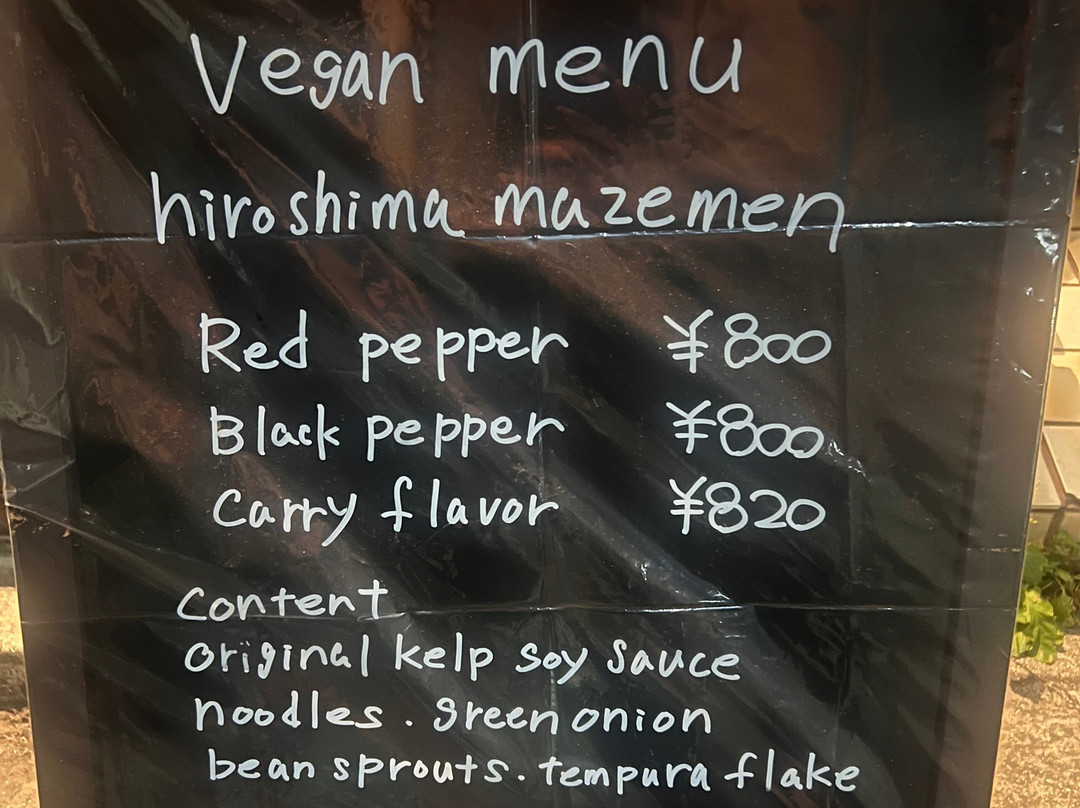 Vegan menu
hiroshima mazemen
Red pepper ¥800
Black pepper ¥800
Carry flavor ¥820
Content
original kelp soy sauce
noodles . green onion
bean sprouts . tempura flake